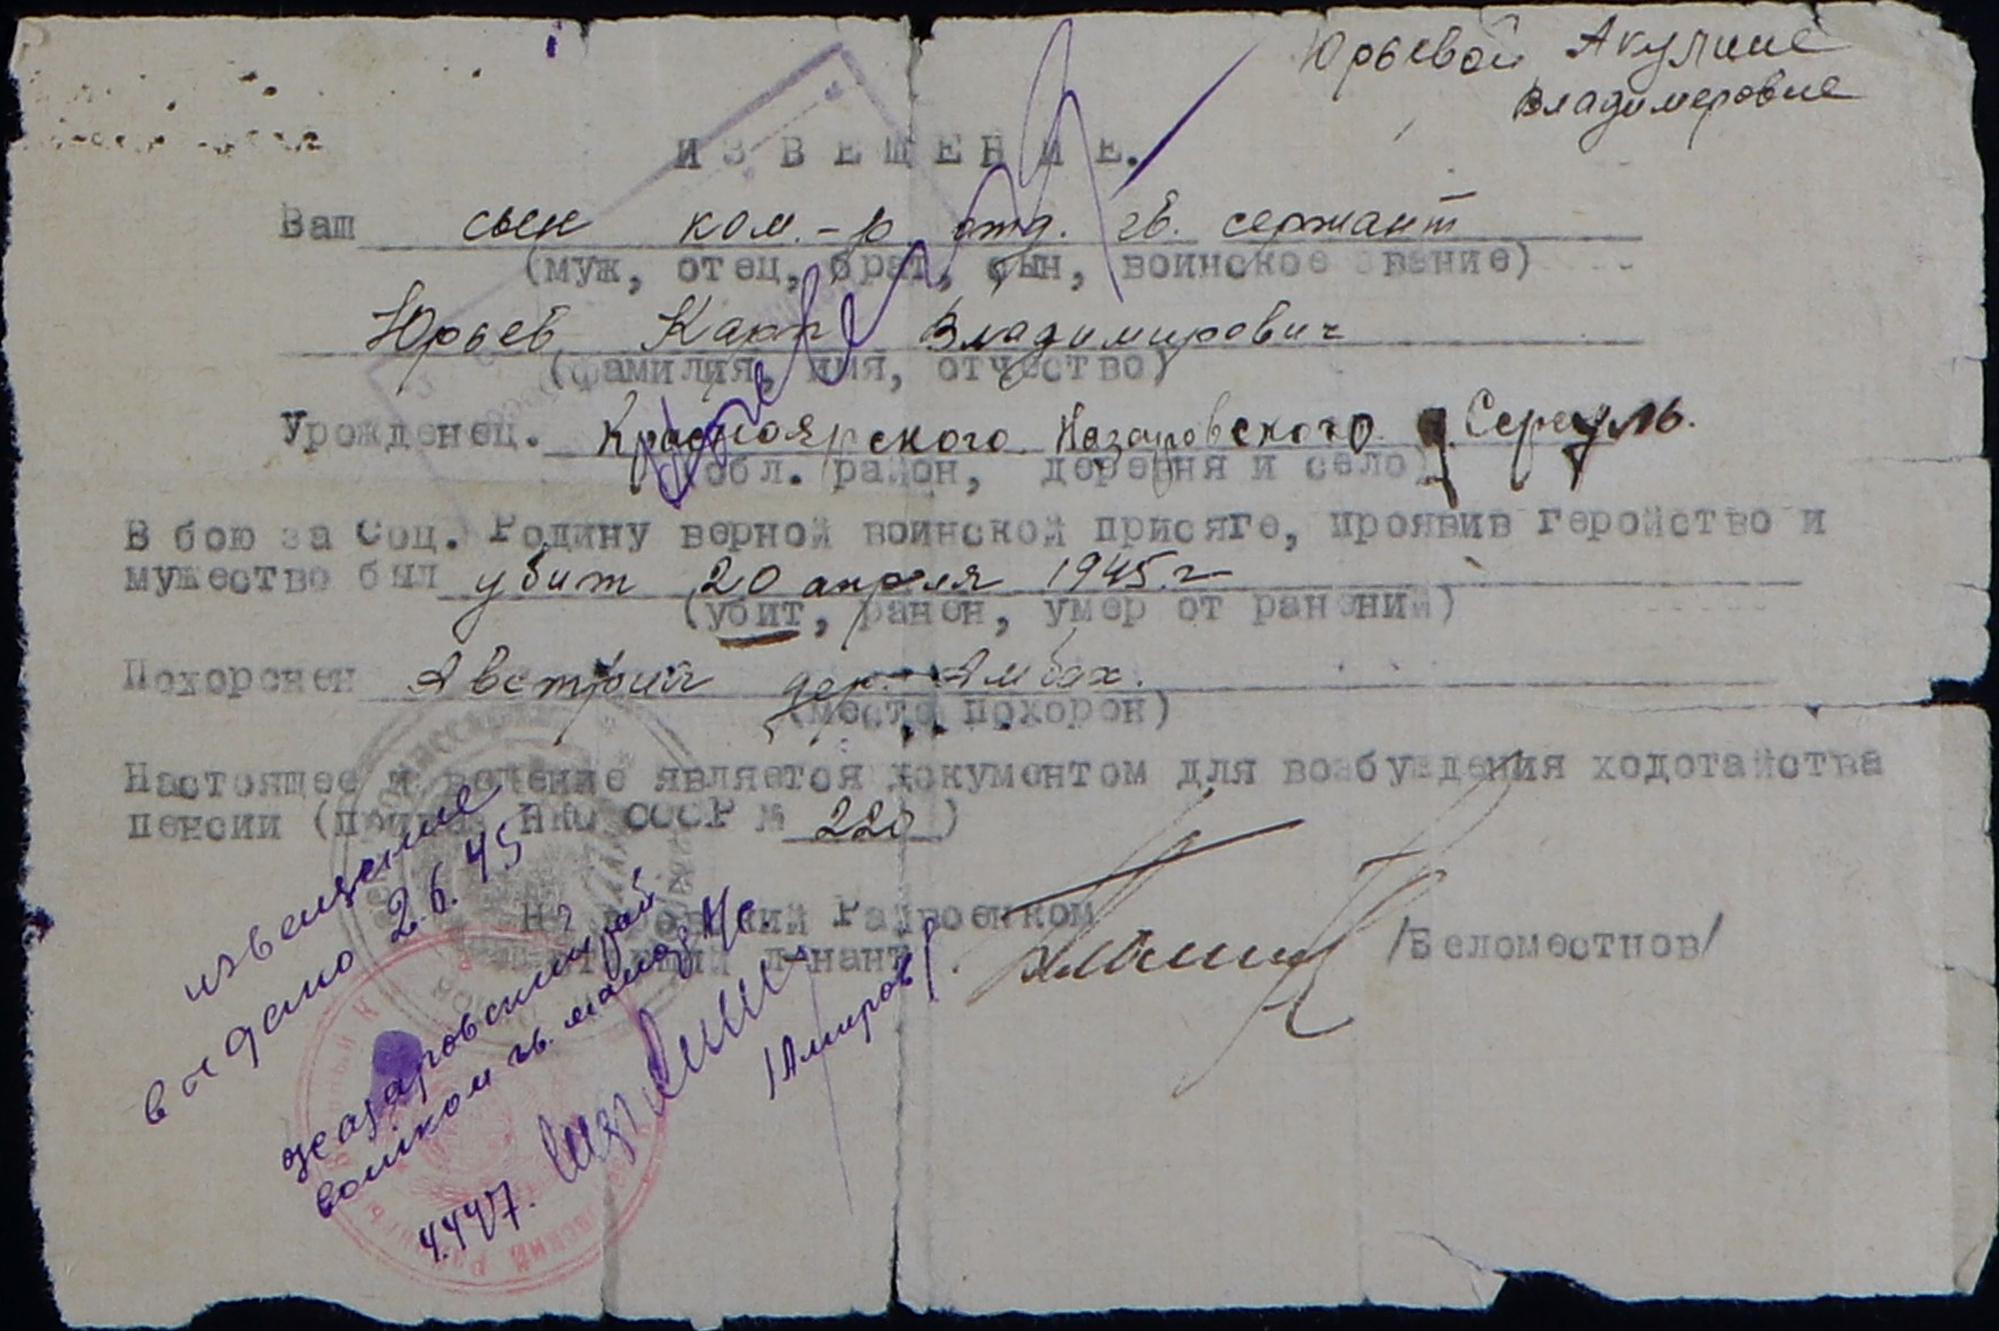 Юрьевой Акулине
Владимеровне
ИЗВЕЩЕНИЕ.
Ваш сын ком.-р отд. гв. сержант
(муж, отец, брат, сын, воинское звание)
Юрьев Карп Владимирович
(фамилия, имя, отчество)
Урожденец. Красноярского Назаровского д Сереуль.
(обл. район, деревня и село)
В бою за Соц. Родину верной воинской присяге, проявив геройство и
мужество был убит 20 апреля 1945 г
(убит, ранен, умер от ранений)
Похоронен Австрия дер. Амбах.
(место похорон)
Настоящее извещение является документом для возбуждения ходотайства
пенсии (приказ НКО СССР № 220)
Райвоенком
/Беломестнов/
извещение
выдано 2.6.45
Назаровский рай
воинком гв. майор
4.4.47.